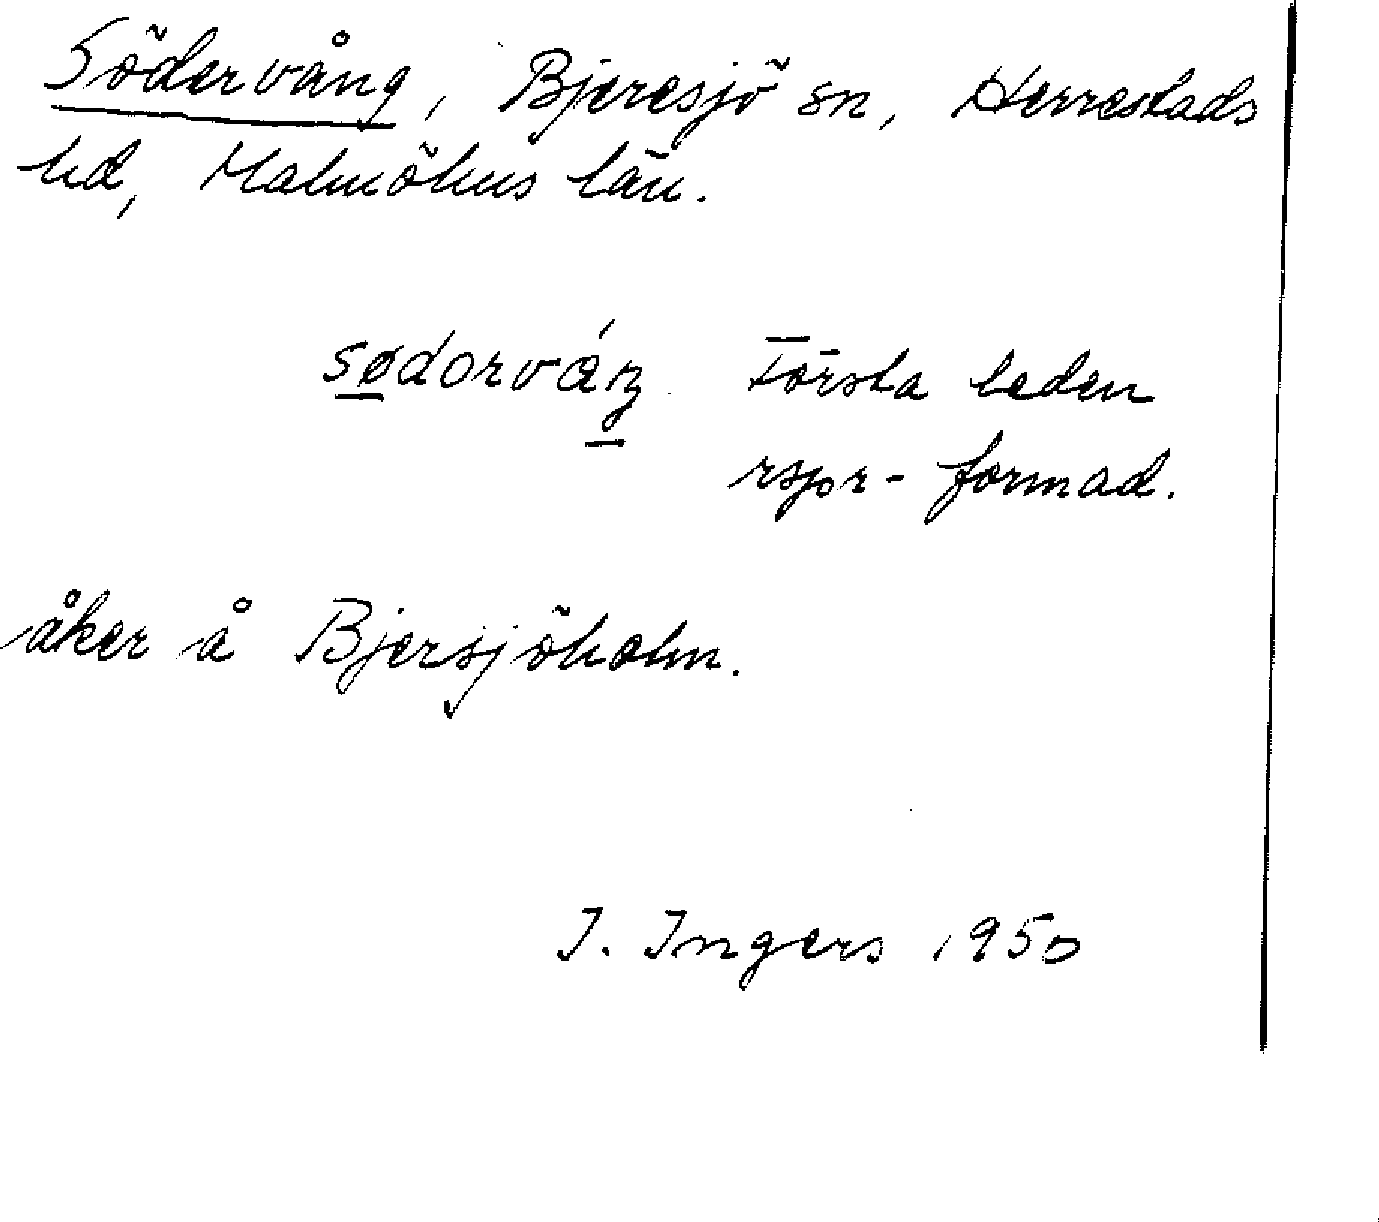 Södervång, Bjeresjö sn, Herrestads
hd, Malmöhus län.
sødorváŋ Första leden
rspr-formad.
åker å Bjersjöholm.
I. Ingers 1950